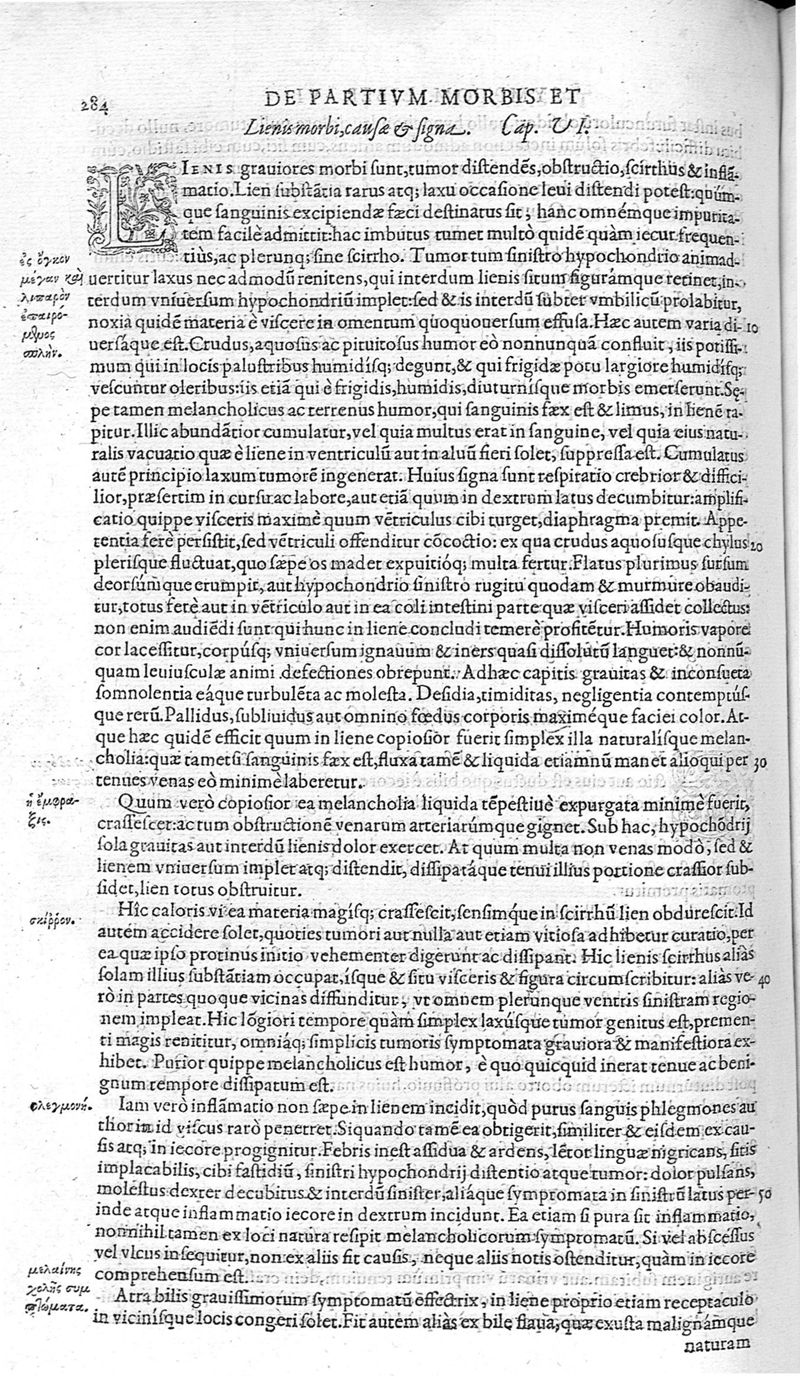 284
DE PARTIVM MORBIS ET
Lienis morbi, causæ & signa. Cap. VI.
LIENIS grauiores morbi sunt, tumor distendēs, obstructio, scirrhus & inflā-
matio. Lien substātia rarus atq; laxus occasione leui distendi potest: quúm-
que sanguinis excipiendæ fæci destinatus sit, hanc omnémque impurita-
tem facilè admittit: hac imbutus tumet multò quidē quàm iecur frequen-
tiùs, ac plerunq; sine scirrho. Tumor tum sinistro hypochondrio animad-
uertitur laxus nec admodū renitens, qui interdum lienis situm figurámque retinet, in-
terdum vniuersum hypochondriū implet: sed & is interdū subter vmbilicū prolabitur,
noxia quidē materia è viscere in omentum quoquouersum effusa. Hæc autem varia di-
10
uersáque est. Crudus, aquosus ac pituitosus humor eò nonnunquā confluit, iis potissi-
mum qui in locis palustribus humidísq; degunt, & qui frigidæ potu largiore humidísq;
vescuntur oleribus: iis etiā qui è frigidis, humidis, diuturnísque morbis emerserunt. Sę-
pe tamen melancholicus ac terrenus humor, qui sanguinis fæx est & limus, in lienē ra-
pitur. Illic abundātior cumulatur, vel quia multus erat in sanguine, vel quia eius natu-
ralis vacuatio quæ è liene in ventriculū aut in aluū fieri solet, suppressa est. Cumulatus
autē principio laxum tumorē ingenerat. Huius signa sunt respiratio crebrior & diffici-
lior, præsertim in cursu ac labore, aut etiā quum in dextrum latus decumbitur: amplifi-
catio quippe visceris maximè quum vētriculus cibi turget, diaphragma premit. Appe-
tentia ferè persistit, sed vētriculi offenditur cōcoctio: ex qua crudus aquosusque chylus
20
plerisque fluctuat, quo sæpe os madet expuitióq; multa fertur. Flatus plurimus sursum
deorsúmque erumpit, aut hypochondrio sinistro rugitu quodam & murmure obaudi-
tur, totus ferè aut in vētriculo aut in ea coli intestini parte quæ visceri assidet collectus:
non enim audiēdi sunt qui hunc in liene concludi temerè profitētur. Humoris vapore
cor lacessitur, corpúsq; vniuersum ignauum & iners quasi dissolutū languet: & nonnū-
quam leuiusculæ animi defectiones obrepunt. Adhæc capitis grauitas & inconsueta
somnolentia eáque turbulēta ac molesta. Desidia, timiditas, negligentia contemptús-
que rerū. Pallidus, subliuidus aut omnino fœdus corporis maximéque faciei color. At-
que hæc quidē efficit quum in liene copiosior fuerit simplex illa naturalisque melan-
cholia: quæ tametsi sanguinis fæx est, fluxa tamē & liquida etiamnū manet alioqui per
30
tenues venas eò minimè laberetur.
Quum verò copiosior ea melancholia liquida tēpestiuè expurgata minimè fuerit,
crassescet: ac tum obstructionē venarum arteriarúmque gignet. Sub hac, hypochōdrij
sola grauitas aut interdū lienis dolor exercet. At quum multa non venas modò, sed &
lienem vniuersum implet atq; distendit, dissipatáque tenui illius portione crassior sub-
sidet, lien totus obstruitur.
Hic caloris vi ea materia magísq; crassescit, sensímque in scirrhū lien obdurescit. Id
autem accidere solet, quoties tumori aut nulla aut etiam vitiosa adhibetur curatio, per
ea quæ ipso protinus initio vehementer digerunt ac dissipant. Hic lienis scirrhus aliàs
solam illius substātiam occupat, ísque & situ visceris & figura circumscribitur: aliàs ve-
40
rò in partes quoque vicinas diffunditur, vt omnem plerunque ventris sinistram regio-
nem impleat. Hic lōgiori tempore quàm simplex laxúsque tumor genitus est, premen-
ti magis renititur, omniáq; simplicis tumoris symptomata grauiora & manifestiora ex-
hibet. Putior quippe melancholicus est humor, è quo quicquid inerat tenue ac beni-
gnum tempore dissipatum est.
Iam verò inflāmatio non sæpe in lienem incidit, quòd purus sanguis phlegmones au
thor in id viscus rarò penetret. Siquando tamē ea obtigerit, similiter & eisdem ex cau-
sis atq; in iecore progignitur. Febris inest assidua & ardens, lētor linguæ nigricans, sitis
implacabilis, cibi fastidiū, sinistri hypochondrij distentio atque tumor: dolor pulsans,
molestus dexter decubitus & interdū sinister, aliáque symptomata in sinistrū latus per-
50
inde atque inflammatio iecore in dextrum incidunt. Ea etiam si pura sit inflammatio,
nonnihil tamen ex loci natura resipit melancholicorum symptomatū. Si vel abscessus
vel vlcus insequitur, non ex aliis fit causis, neque aliis notis ostenditur, quàm in iecore
comprehensum est.
Atra bilis grauissimorum symptomatū effectrix, in liene proprio etiam receptaculo
in vicinísque locis congeri solet. Fit autem aliàs ex bile flaua, quæ exusta malignámque
naturam
ἐς ὄγκον
μέγαν καὶ
λιπαρὸν
ἐπαιρό-
μενος
σπλήν.
ἡ ἔμφρα-
ξις.
σκίρρον.
φλεγμονή.
μελαίνης
χολῆς συμ
πτώματα.